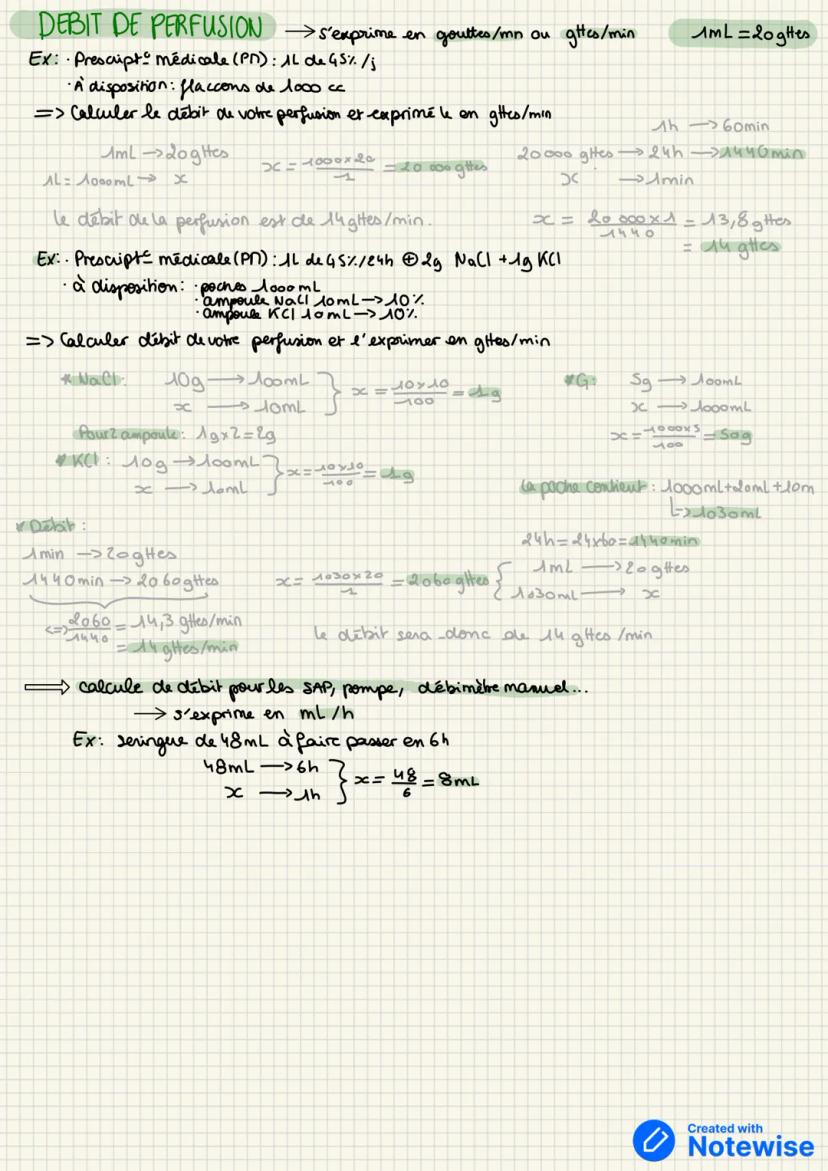 DEBIT DE PERFUSION → s'exprime en gouttes/mn ou gttes/min 1mL = 20 gttes
Ex: · Prescript° médicale (PM) : 1L de G5% /j
· À disposition : flaccons de 1000 cc
=> Calculer le débit de votre perfusion et exprimé le en gttes/min
1h → 60min
1mL → 20 gttes
1L = 1000mL → x
x = 1000 x 20 / 1 = 20 000 gttes
20 000 gttes → 24h → 1440min
x → 1min
le débit de la perfusion est de 14 gttes/min.
x = 20 000 x 1 / 1440 = 13,8 gttes
= 14 gttes
Ex: · Prescript° médicale (PM) : 1L de G5%/24h ⊕ 2g NaCl + 1g KCl
· à disposition : · poches 1000mL
· ampoule NaCl 10mL → 10%
· ampoule KCl 10mL → 10%
=> Calculer débit de votre perfusion et l'exprimer en gttes/min
* NaCl : 10g → 100mL
x → 10mL
} x = 10 x 10 / 100 = 1g
Pour 2 ampoule : 1g x 2 = 2g
* KCl : 10g → 100mL
x → 10mL
} x = 10 x 10 / 100 = 1g
* G : 5g → 100mL
x → 1000mL
x = 1000 x 5 / 100 = 50g
La poche contient : 1000mL + 20mL + 10m
↳ 1030mL
* Débit :
24h = 24 x 60 = 1440min
1min → 20 gttes
1440min → 2060 gttes
x = 1030 x 20 / 1 = 2060 gttes { 1mL → 20 gttes
1030mL → x
<=> 2060 / 1440 = 14,3 gttes/min
= 14 gttes/min
le débit sera donc de 14 gttes/min
⇒ calcule de débit pour les SAP, pompe, débimètre manuel...
→ s'exprime en mL/h
Ex: seringue de 48mL à faire passer en 6h
48mL → 6h
x → 1h
} x = 48 / 6 = 8mL
Created with
Notewise